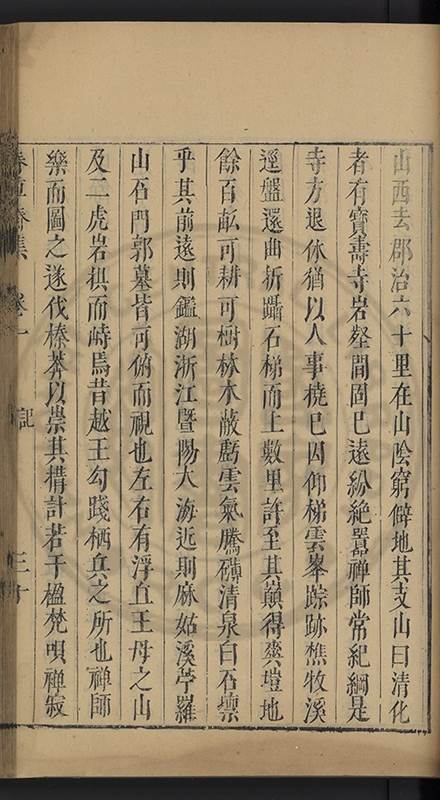 山西去郡治六十里在山陰窮僻地其支山曰清化
者有寶壽寺岩壑間固已遠紛絶囂禪師常紀綱是
寺方退休猶以人事橈已因仰梯雲峯踪跡樵牧溪
逕盤還曲折躡石梯而上數里許至其巔得塽塏地
餘百畝可耕可樹林木蔽虧雲氣騰礴清泉白石縈
乎其前遠則鑑湖浙江暨陽大海近則麻姑溪苧羅
山石門郭墓皆可俯而視也左右有浮丘王母之山
及二虎岩拱而峙焉昔越王勾踐栖兵之所也禪師
樂而圖之遂伐榛莽以崇其構計若干楹梵唄禪寂
集 卷 記 三十